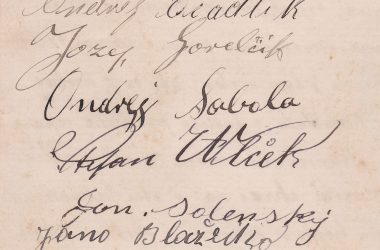 Ondrej
Jozef Gorelčik
Ondrej Sabola
Štefan Vlček
Jon. Solenskij
Jano Blažeško